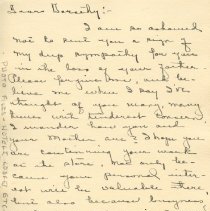 Dear Dorothy:-
I am so ashamed
not to sent you a sign of
my deep sympathy for you
in the loss of your father.
Please forgive me, and be-
lieve me when I say I've
thought of you many, many
times with tenderest concern.
I wonder how you and
your Mother are? I hope you
are continuing your work
at the store. Not only be-
cause your personal inter-
est will be valuable there,
but also because business